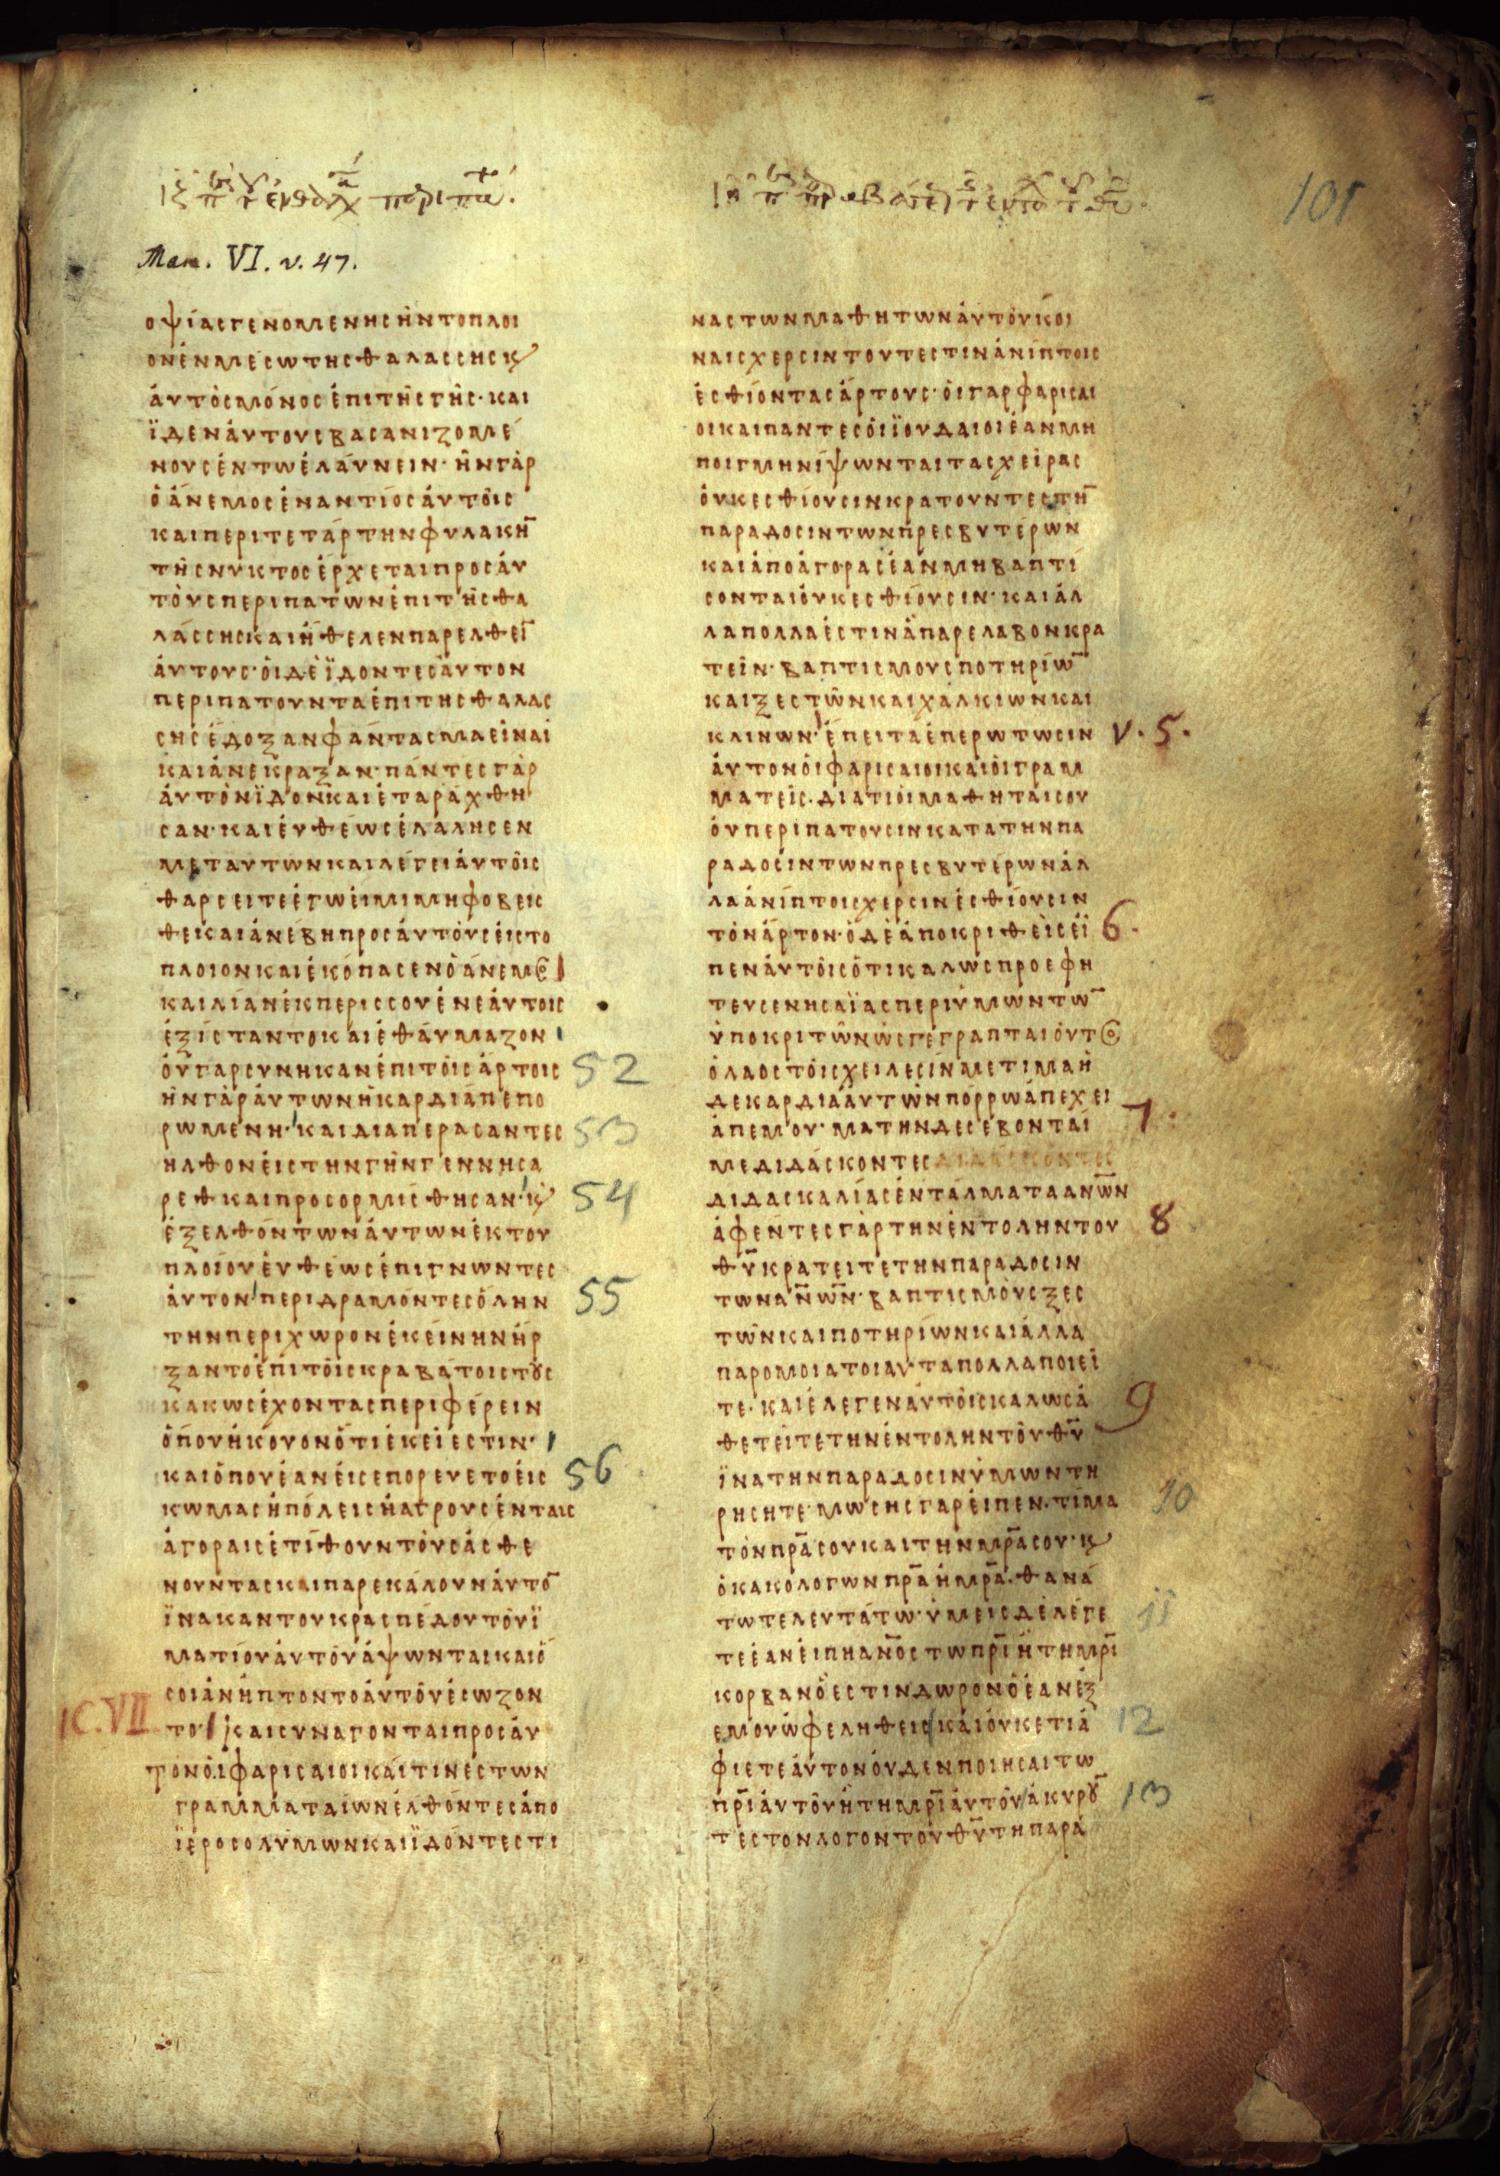 101
Mar. VI. v. 47.
ὀψίαςγενομενηςἠντοπλοι
ονἐνμέσωτηςθαλασσηςκ
ἀυτὸςμόνοςἐπιτῆςγῆς·και
ϊδενἀυτουςβασανιζομέ
νουςἐντωἐλάυνειν·ἠνγὰρ
ὁἄνεμοςἐναντίοςἀυτοῖς
καιπεριτετάρτηνφυλακη̅
τῆςνυκτοςἐρχεταιπροςἀυ
τὸυςπεριπατῶνἐπιτῆςθα
λάσσηςκαιἤθελενπαρελθεῖ̅
ἀυτους·ὁιδεϊδοντεςἀυτον
περιπατουνταἐπιτηςθαλας
σηςἐδοξανφάντασμαεἶναι
καιἀνέκραξαν·πάντεςγὰρ
ἀυτὸνϊδονκαιἐταράχθη
σαν·καιἐυθέωςἐλάλησεν
μεταυτωνκαιλέγειἀυτοῖς
θαρσειτεἐγώἐιμιμηφοβεις
θεκαιἀνέβηπροςἀυτὸυςἐιςτο
πλοιονκαιἐκόπασενὁἄνεμο
καιλίανἐκπερισσουἐνἑἀυτοις
ἐξίσταντοκαιἐθάυμαζον
ὀυγαρσυνηκανἐπιτοῖςἄρτοις 52
ἠνγὰρἀυτωνἡκαρδιάπεπο
ρωμενη·καιδιαπερασαντες 53
ηλθονἐιςτηνγῆνγεννησα
ρεθκαιπροσορμισθησαν·κ 54
ἐξελθόντωνἀυτωνἐκτου
πλοίουἐυθέωςἐπιγνωντες
ἀυτονπεριδραμόντεςὅλην 55
τηνπεριχωρονἐκείνηνἤρ
ξαντοἐπιτοῖςκραβάτοιςτους
κακωςἔχονταςπεριφέρειν
ὅπουἠκουονὅτιἐκεῖεστιν·
καιὅπουἐανἐισεπορευετοἐις 56
κωμαςἠπόλειςἠαγρουςἐνταις
ἀγοραιςἐτίθουντὸυςἀσθε
νουνταςκαιπαρεκάλουνἀυτο̅
ϊνακαντουκρασπέδουτοῦϊ
ματίουἀυτοῦἅψωνταικαιὅ
σοιἀνήπτοντοἀυτοῦἐσωζον
IC.VII το·καισυναγονταιπροςἀυ
τονὁιφαρισαιοικαίτινέςτων
γραμματαίωνἐλθοντεςἀπο
ϊεροσολύμωνκαιϊδόντεςτι
ναςτωνμαθητωνἀυτοῦκοι
ναιςχερσιντουτεστινἀνίπτοις
ἐσθίονταςἄρτους·ὁιγαρφαρισαι
οικαιπαντεςὁιϊουδαιοιἐανμη
πυγμηνίψωνταιταςχεῖρας
ὀυκεσθίουσινκρατουντεςτη̅
παραδοσιντωνπρεσβυτέρων
καιἀποἀγορᾶςἐανμηβαπτί
σονταιὀυκεσθίουσιν·καιἀλ
λαπολλαἐστινἃπαρελαβονκρα
τεῖν·βαπτισμουςποτηρίω̅
καιξεστῶνκαιχαλκιωνκαι
κλινων·ἐπειταἐπερωτωσιν v. 5.
ἀυτονὁιφαρισαιοικαιὁιγραμ
ματεῖς·διατιὁιμαθηταισου
ὀυπεριπατουσινκατατηνπα
ραδοσιντωνπρεσβυτέρωνἀλ
λαἀνίπτοιςχερσινἐσθίουσιν
τὸνἄρτον·ὁδὲἀποκριθεὶςεἶ 6.
πενἀυτοῖςὅτικαλωςπροεφη
τευσενησαϊαςπεριὑμωντω̅
ὑποκριτῶνὡςγέγραπταιὁυτο
ὁλαοςτοῖςχείλεσίνμετιμαἡ
δεκαρδιαἀυτῶνπόρρωἀπεχει
ἀπεμοῦ·ματηνδεσέβονταί 7.
μεδιδάσκοντες
διδασκαλίαςἐντάλματαανω̅ν
ἀφέντεςγὰρτηνἐντολήντου 8
θυ̅κρατειτετηνπαραδοσιν
τωνανω̅ν·βαπτισμὸυςξες
τῶνκαιποτηρίωνκαιἀλλα
παρομοιατοιαυταπολλαποιεῖ
τε·καιἐλεγενἀυτοῖςκαλωςἀ 9
θετεῖτετηνἐντοληντοῦθυ̅
ϊνατηνπαραδοσινὑμωντη
ρησητε·μωσηςγαρἐιπεν·τίμα 10
τὸνπρ̅ασουκαιτηνμρ̅ασου·κ
ὁκακολογωνπρ̅αἠμρ̅α·θανά
τωτελευτάτω·ὑμειςδὲλέγε 11
τεἐανἐιπηανο̅ςτωπρ̅ιἠτημρ̅ι
κορβανὅεστινδωρονὃἐανἐξ
εμοῦὠφεληθειςκαιὀυκετιἀ 12
φιετεἀυτονὀυδενποιησαιτω
πρ̅ιἀυτοῦἠτημρ̅ιἀυτοῦἀκυρου̅ 13
τεςτονλογοντοῦθυ̅τηπαρα